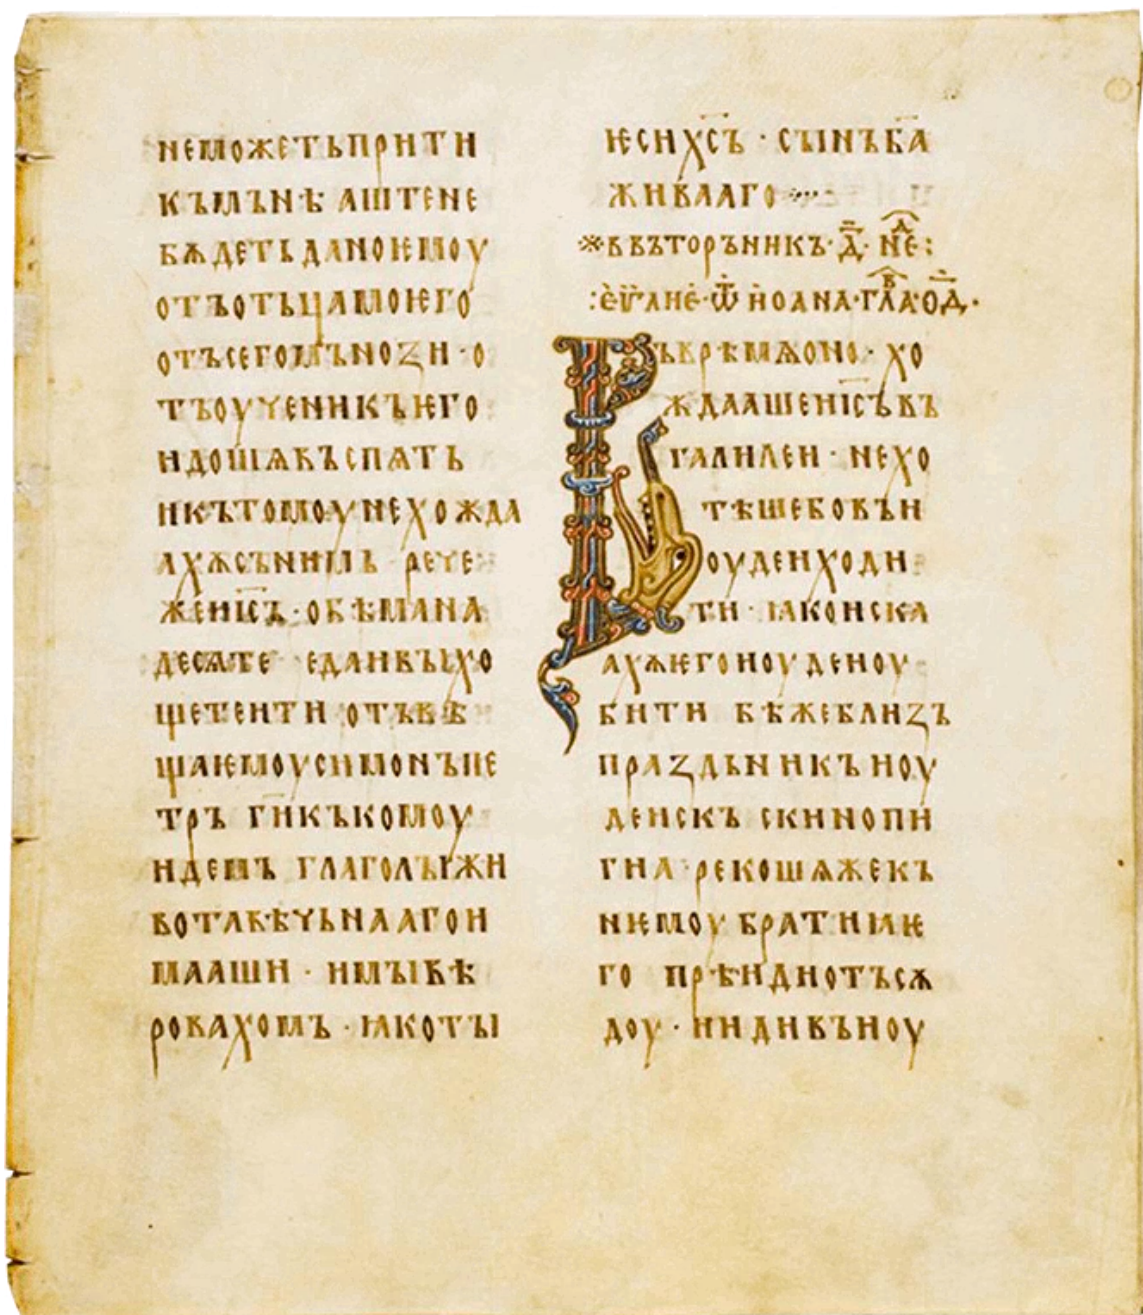 не можетьприти
къмънѣ аштене
бѫдетьданоѥмоу
отъотьцамоѥго
отъсегомъноꙁи · о
тъоученикъѥго
идошѧвъспѧть
икътомоунехожда
ахѫсънимь рече
жеіс҃ъ · обѣмана
десѧте еданвыхо
щетеити отъвѣ
щаѥмоусимонъпе
тръ г҃икъкомоу
идемъ глаголыжи
вотавѣчьнаагои
мааши · имывѣ
ровахомъ · ꙗкоты
ѥсих҃съ · сынъб҃а
живааго
въвторьникъ · д҃ · не҃ :
: еѵ҃гаⷩ҇не · ѿ иоана · гл҃а · од҃ ·
Въврѣмѧоно · хо
ждаашеиі҃съвъ
галилеи · нехо
тѣшебовъи
оудеиходи
ти · ꙗкоиска
ахѫѥгоиоудеиоу
бити бѣжеблиꙁъ
праꙁдьникъиоу
деискъ скинопи
гиа · рекошѧжекъ
нѥмоу братиꙗѥ
го прѣидиотъсѫ
доу · иидивъиоу